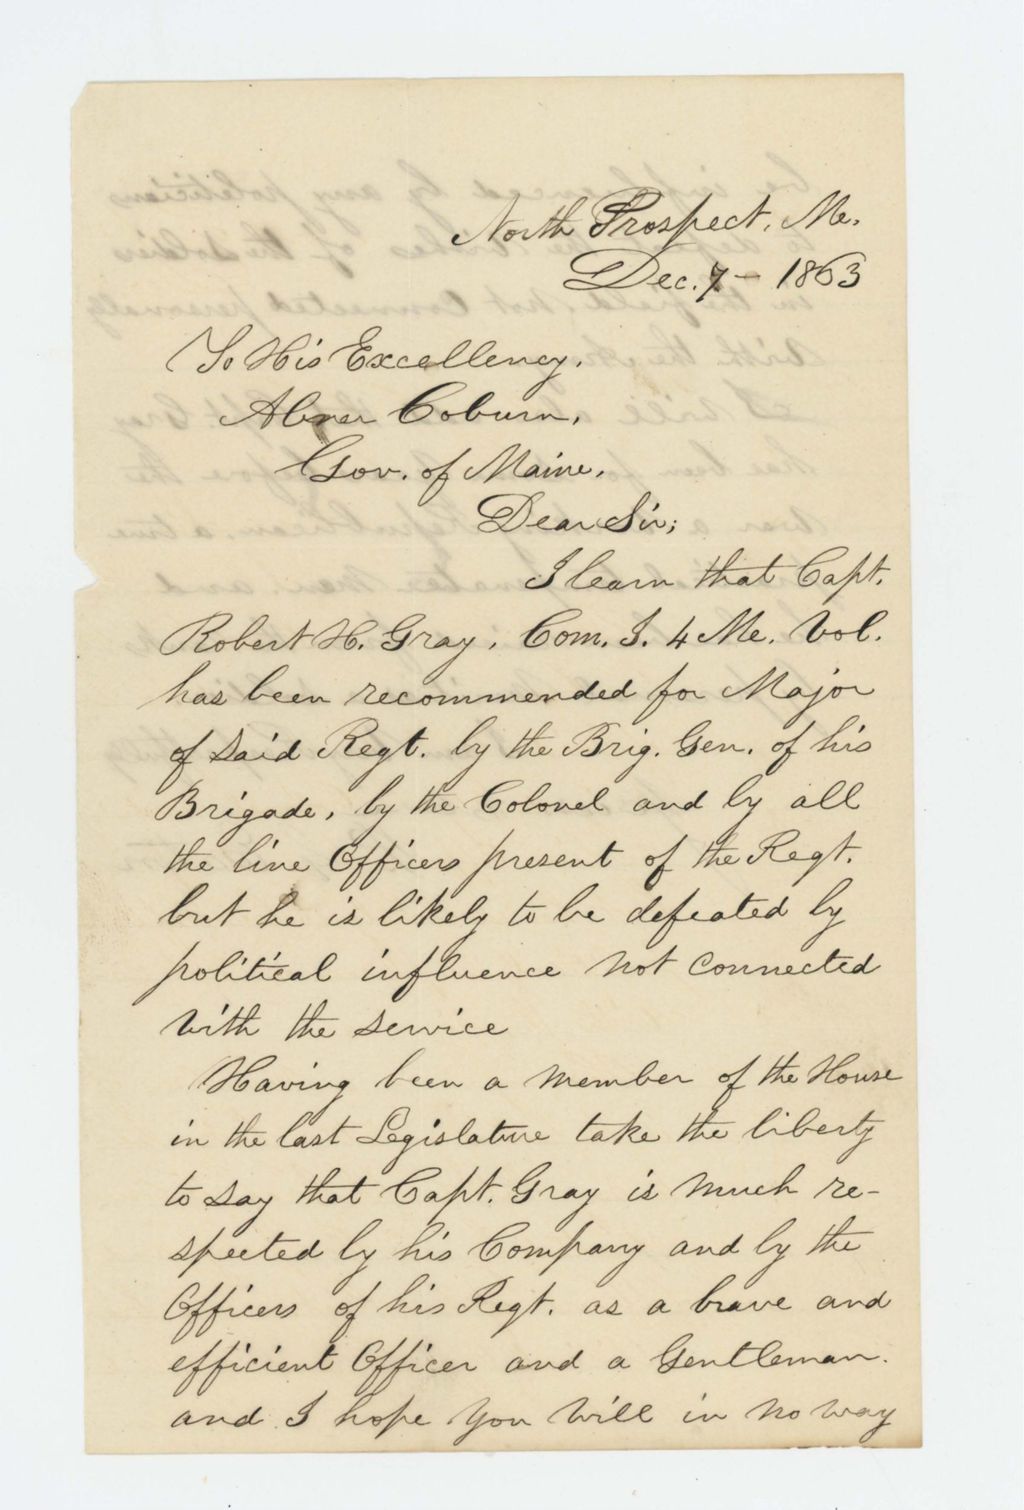 North Prospect, Me.
Dec. 7 - 1863
To His Excellency,
Abner Coburn,
Gov. of Maine,
Dear Sir;
I learn that Capt.
Robert H. Gray, Com. I. 4 Me. Vol.
has been recommended for Major
of said Regt. by the Brig. Gen. of his
Brigade, by the Colonel and by all
the line Officers present of the Regt.
but he is likely to be defeated by
political influence not connected
with the service
Having been a member of the House
in the last Legislature take the liberty
to say that Capt. Gray is much re-
spected by his Company and by the
Officers of his Regt. as a brave and
efficient Officer and a Gentleman.
and I hope you will in no way